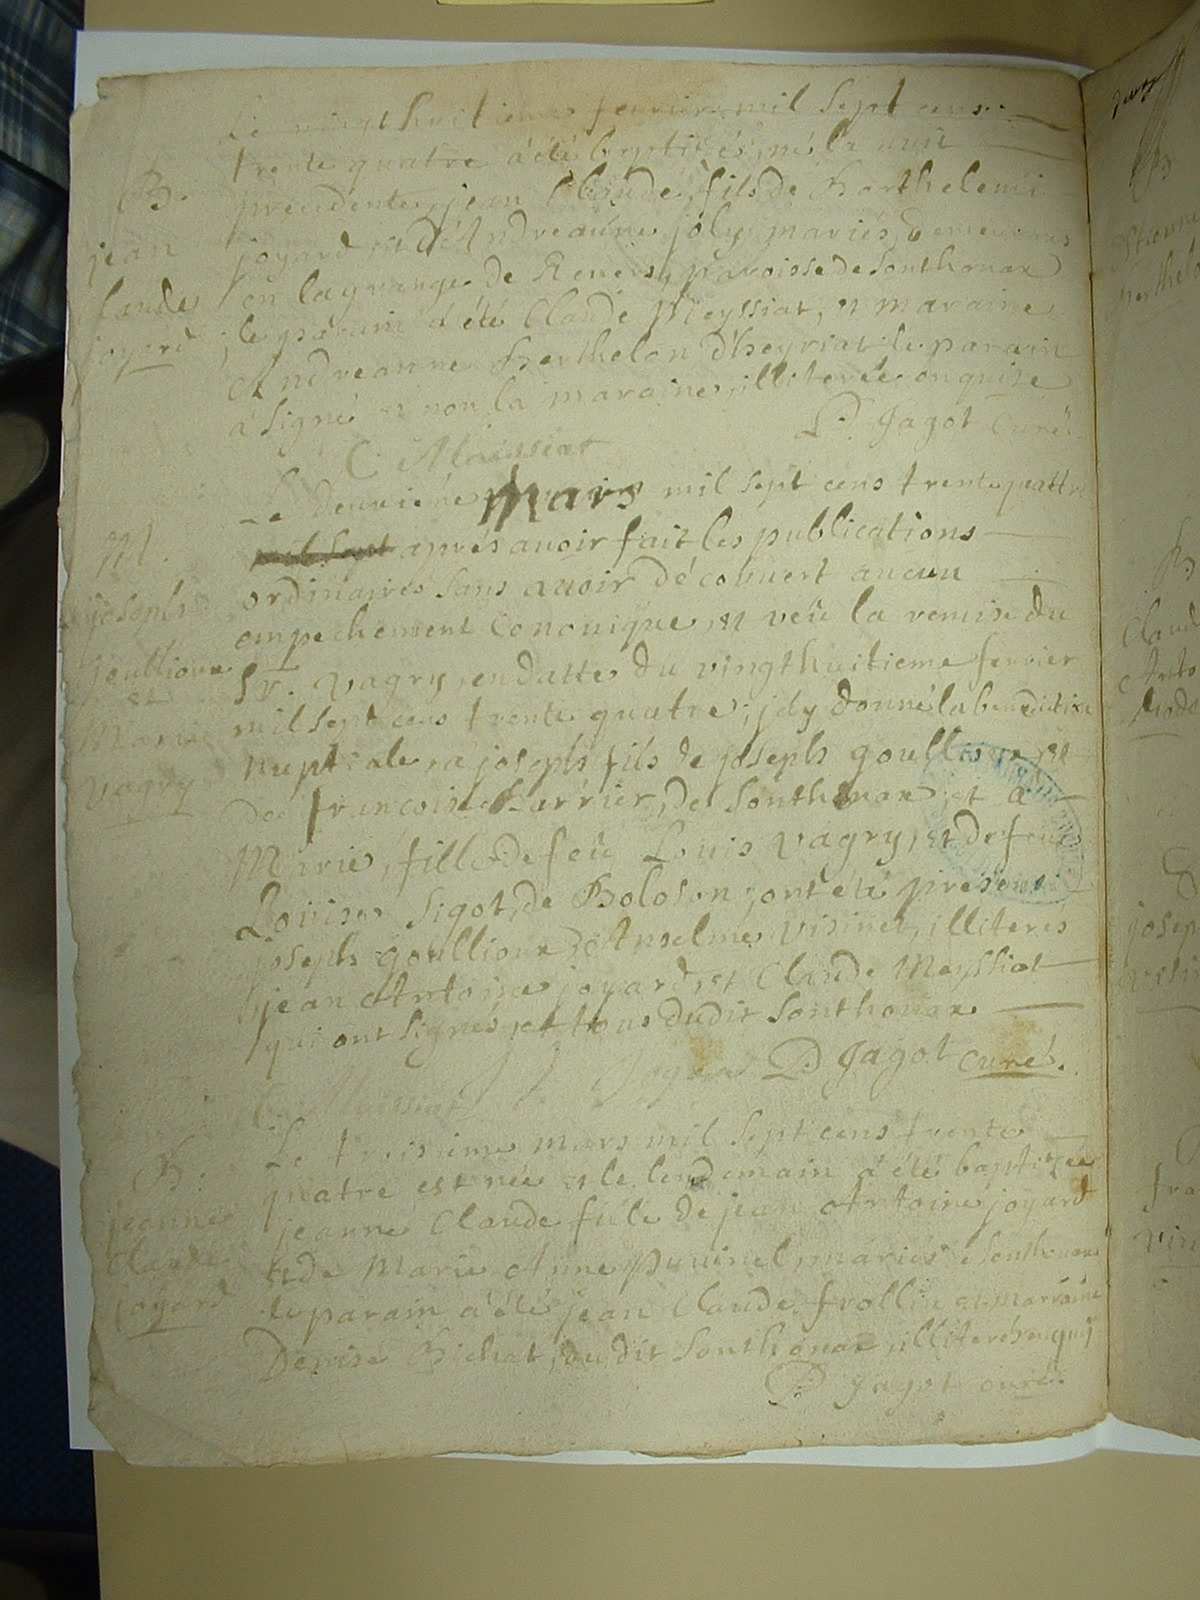 Le vingt huitieme fevrier mil sept cens
trente quatre a été baptisé, né la nuit
B.
precedente, jean Claude, fils de Barthelemi
jean
joyard et d'Andreanne joly, mariés, demeurans
Claude
en la grange de Revers, paroisse de Sonthonax
joyard
; le parain a été Claude Meyssiat, et maraine
Andreanne Berthelon d'heyriat le parain
a signé et non la maraine, illiterée enquise
P. Jagot Curé
C. Maissiat
Le deuxiéme Mars mil sept cens trente quattre
M.
mil sept aprés avoir fait les publications
ordinaires sans avoir découvert aucun
joseph
empechement Cononique, et veü la remise du
goullioux
Sr. vagry, en datte du vingt huitieme fevrier
et
Marie
mil sept cens trente quatre, j'ay donné la benediction
vagry
nuptiale, a joseph fils de joseph goullioux et
de francoise Barrier, de Sonthonax, et a
Marie, fille de feü Louis vagry, et de feue
Louise Sigot, de Boloson; ont été presens
joseph goullioux, Anselme visinet, illiteres
jean Antoine joyard, et Claude Meyssiat
qui ont signes, et tous dudit Sonthonax
J J Joyard P. Jagot Curé.
C. Maissiat
Le troisieme mars mil sept cens trente
B.
quatre est née et le lendemain a été baptizée
jeanne
jeanne Claude fille de jean Antoine joyard
Claude
et de Marie Anne Puvinel, mariés a Sonthonax
joyard
le parain a été jean Claude frollin et marraine
Denise Bichat, du dit Sonthonax, illiterés enquis
P. Jagot curé.
B
Claud
Anto
B
josep
fra
vin